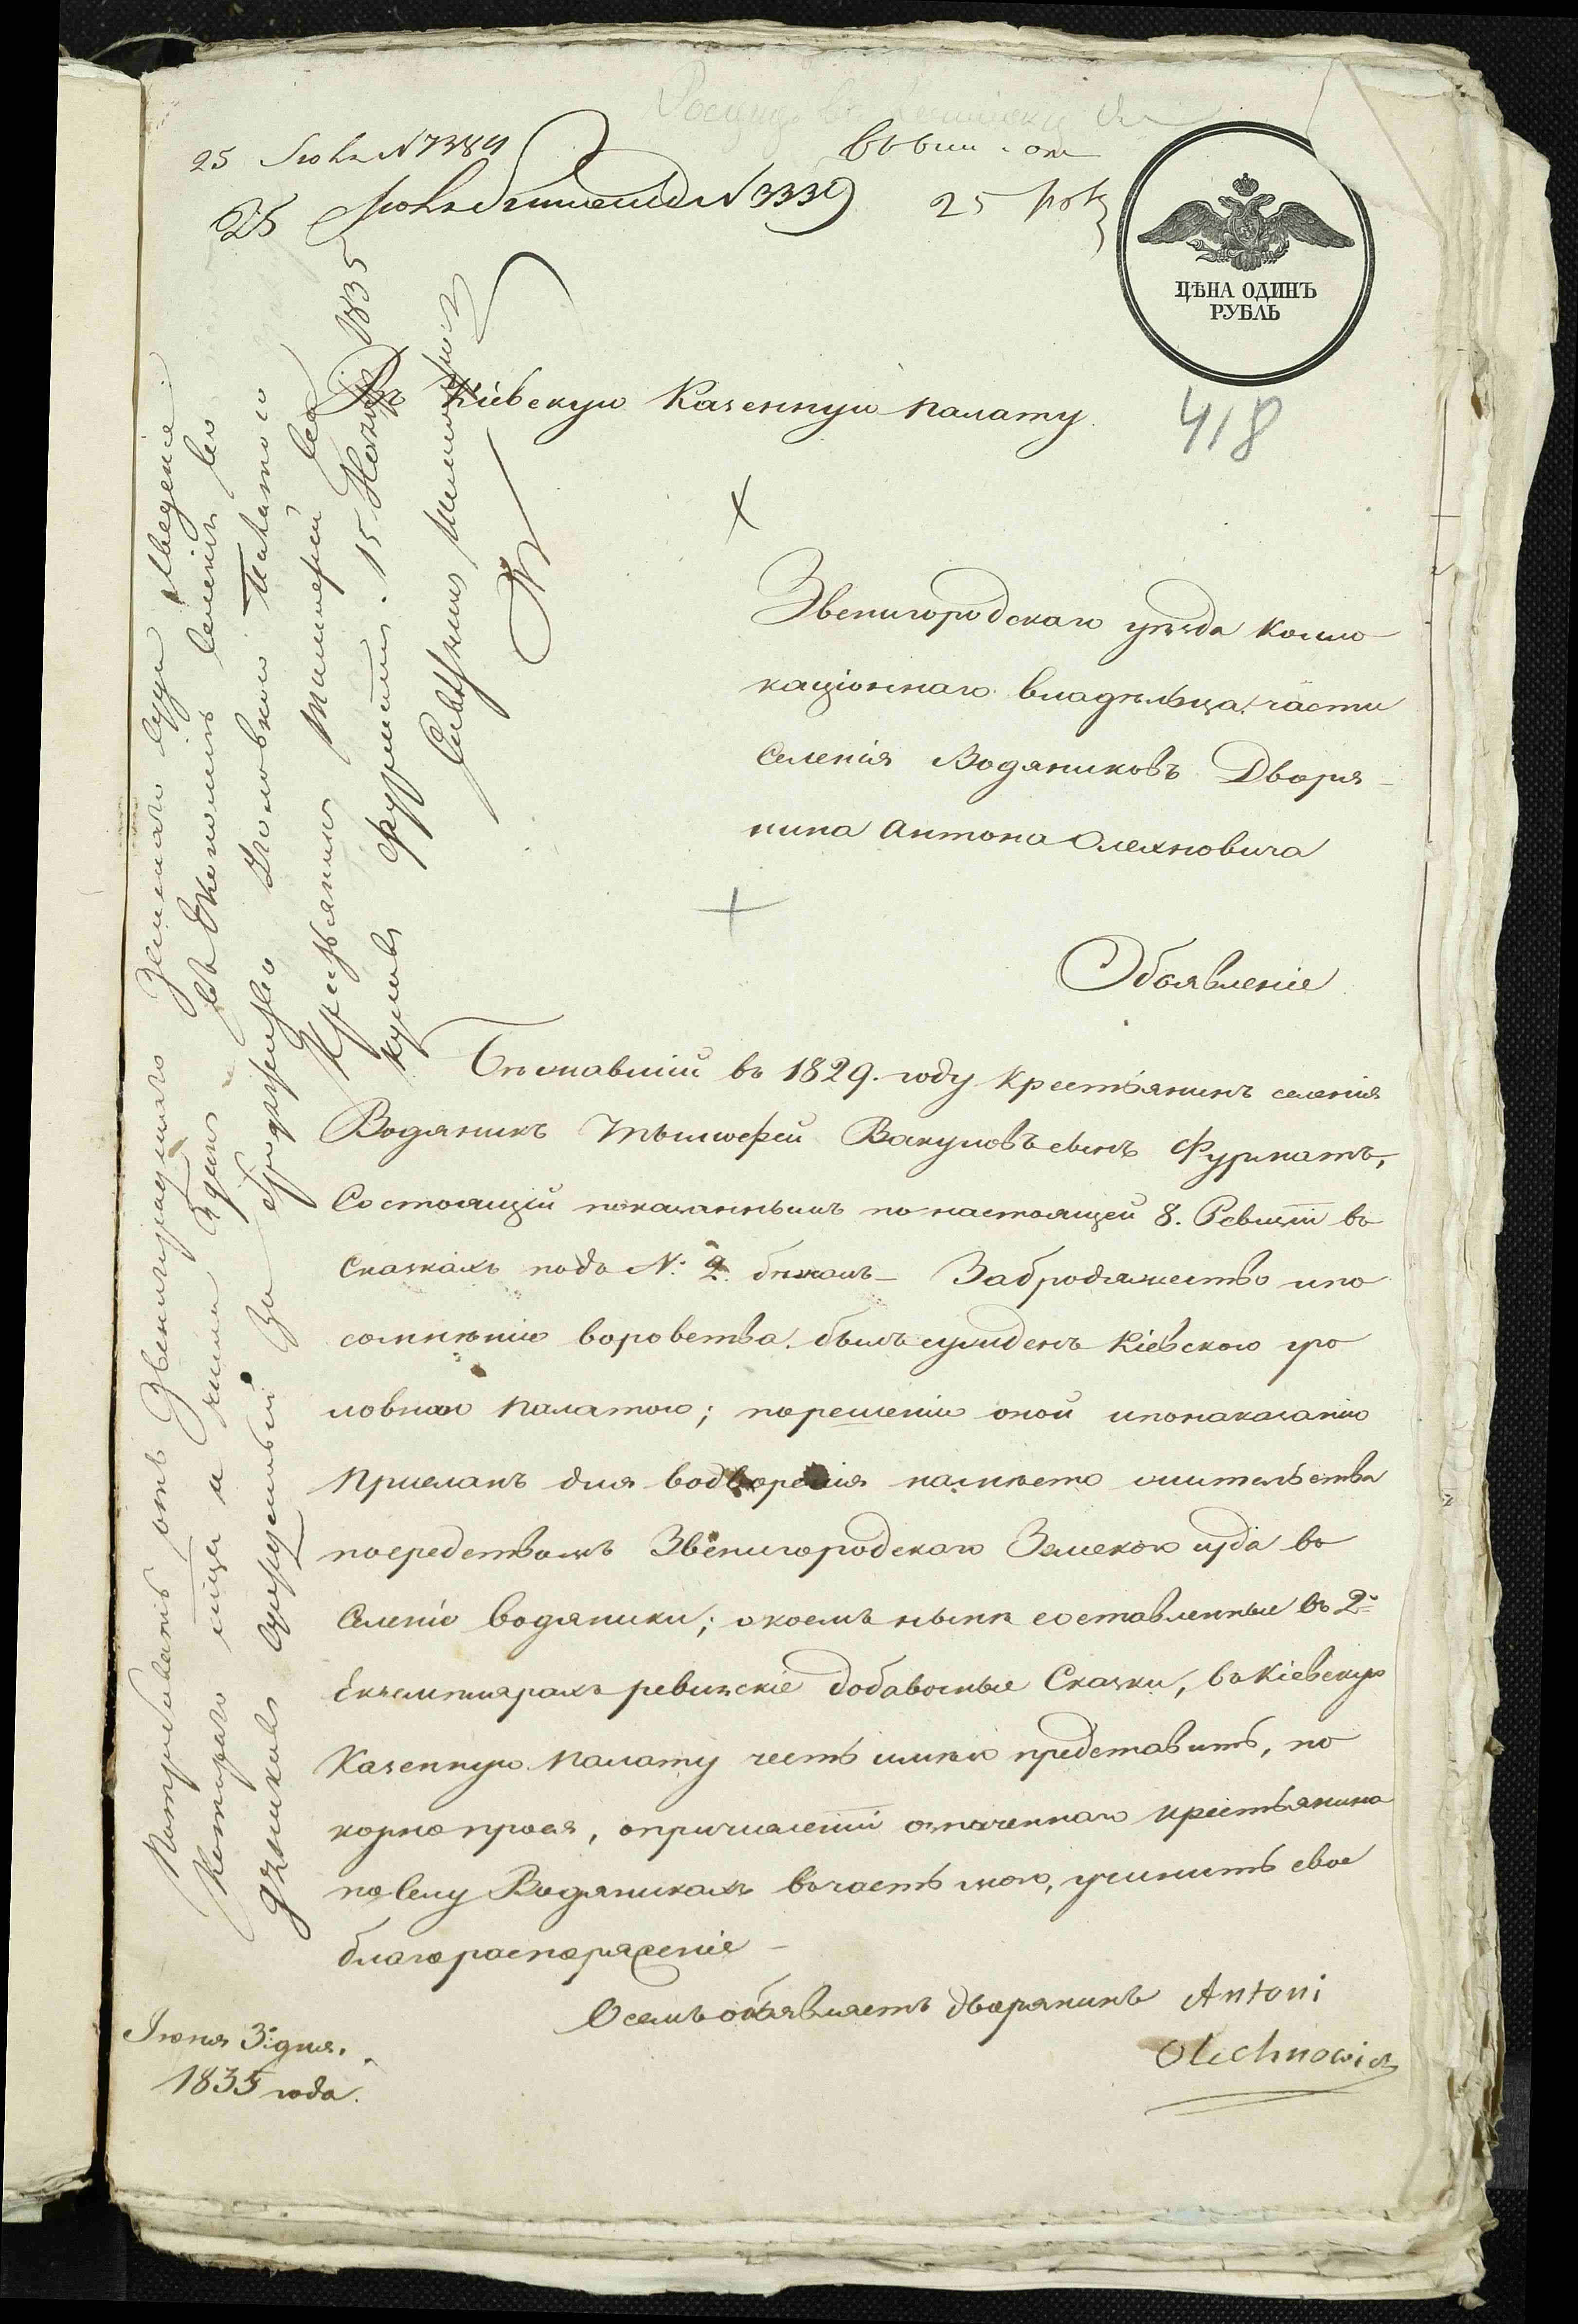 25 Июля N 7389
25 Июля N 3339
25 Июля
ЦѢНА ОДИНЪ
РУБЛЬ
418
Въ Кіевскую Казенную палату
Звенигородскаго уѣзда Колло
каціоннаго владѣльца части
Селенія Водяниковъ Дворя-
нина Антона Олехновича
Объявленіе
Бѣжавшій въ 1829. году Крестьянинъ селенія
Водяникъ Тымофей Вакуловъ сынъ Фурматъ,
Состоящій показаннымъ по настоящей 8. Ревизіи въ
Сказкахъ подъ N: 2. бѣжалъ – За бродяжество и по
сомнѣнію воровства былъ сужденъ Кіевскою уго
ловною Палатою; по решенію оной и по наказанію
Присланъ для водворенія на мѣсто жительства
посредствомъ Звенигородскаго Земскаго суда въ
Селеніе водяники; о коемъ нынѣ составленные въ 2х
Екземплярахъ ревизскіе добавочные Сказки, въ Кіевскую
Казенную Палату честь имѣю представить, по
корно прося, о причисленіи означеннаго крестьянина
по Селу Водяникахъ въ часть мою, учинить свое
благораспоряженіе –
О семъ объявляетъ дворянинъ Antoni
Olechnowicz
Іюня 3: дня.
1835 года.
Потребовать отъ Звенигородскаго Земскаго Суда Сведеніе
Котораго мѣсяца и числа въ
за бродяжество Уголовною Палатою
Крестьянинъ Тимофей Ва
куловъ Фурматъ. 15 1835